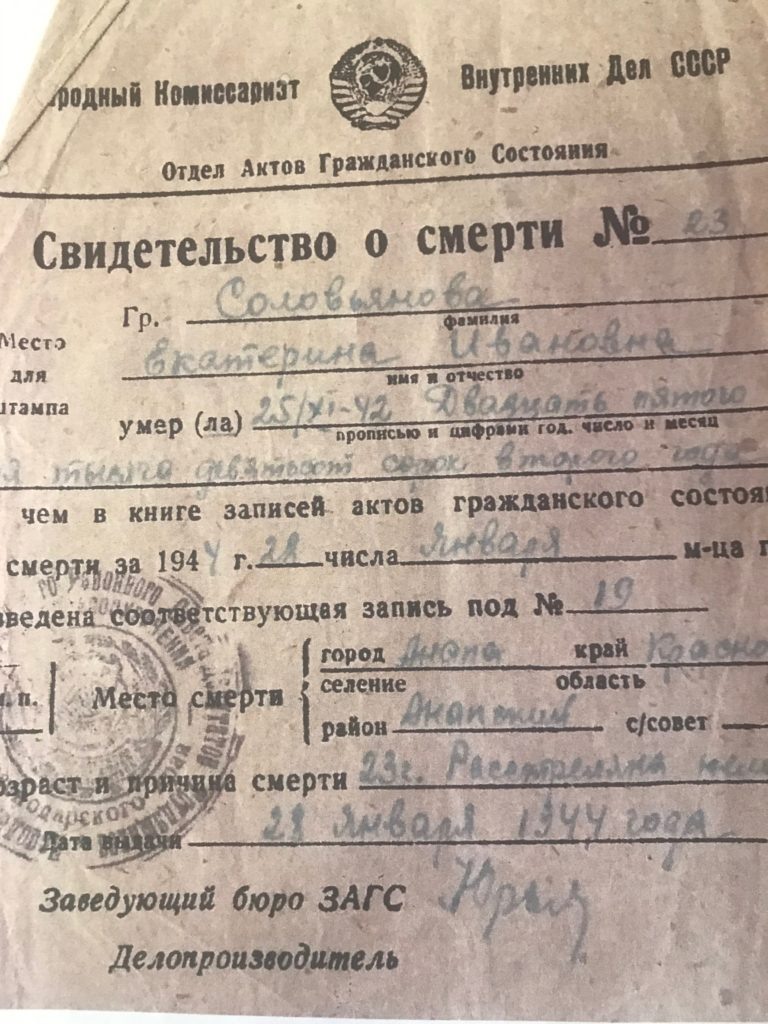 родный Комиссариат Внутренних Дел СССР
Отдел Актов Гражданского Состояния
Свидетельство о смерти № 23
Гр. Соловьянова
фамилия
Место
для
штампа
Екатерина Ивановна
имя и отчество
умер (ла) 25/XI-42 Двадцать пятого
прописью и цифрами год, число и месяц
я тысяча девятьсот сорок второго года
чем в книге записей актов гражданского состоя
смерти за 1944 г. 28 числа Января м-ца г
зведена соответствующая запись под № 19
М. п.
Место смерти
город Анапа край Красно
селение область
район Анапский с/совет
озраст и причина смерти 23 г. Расстреляна нем
Дата выдачи 28 Января 1944 года
Заведующий бюро ЗАГС
Делопроизводитель